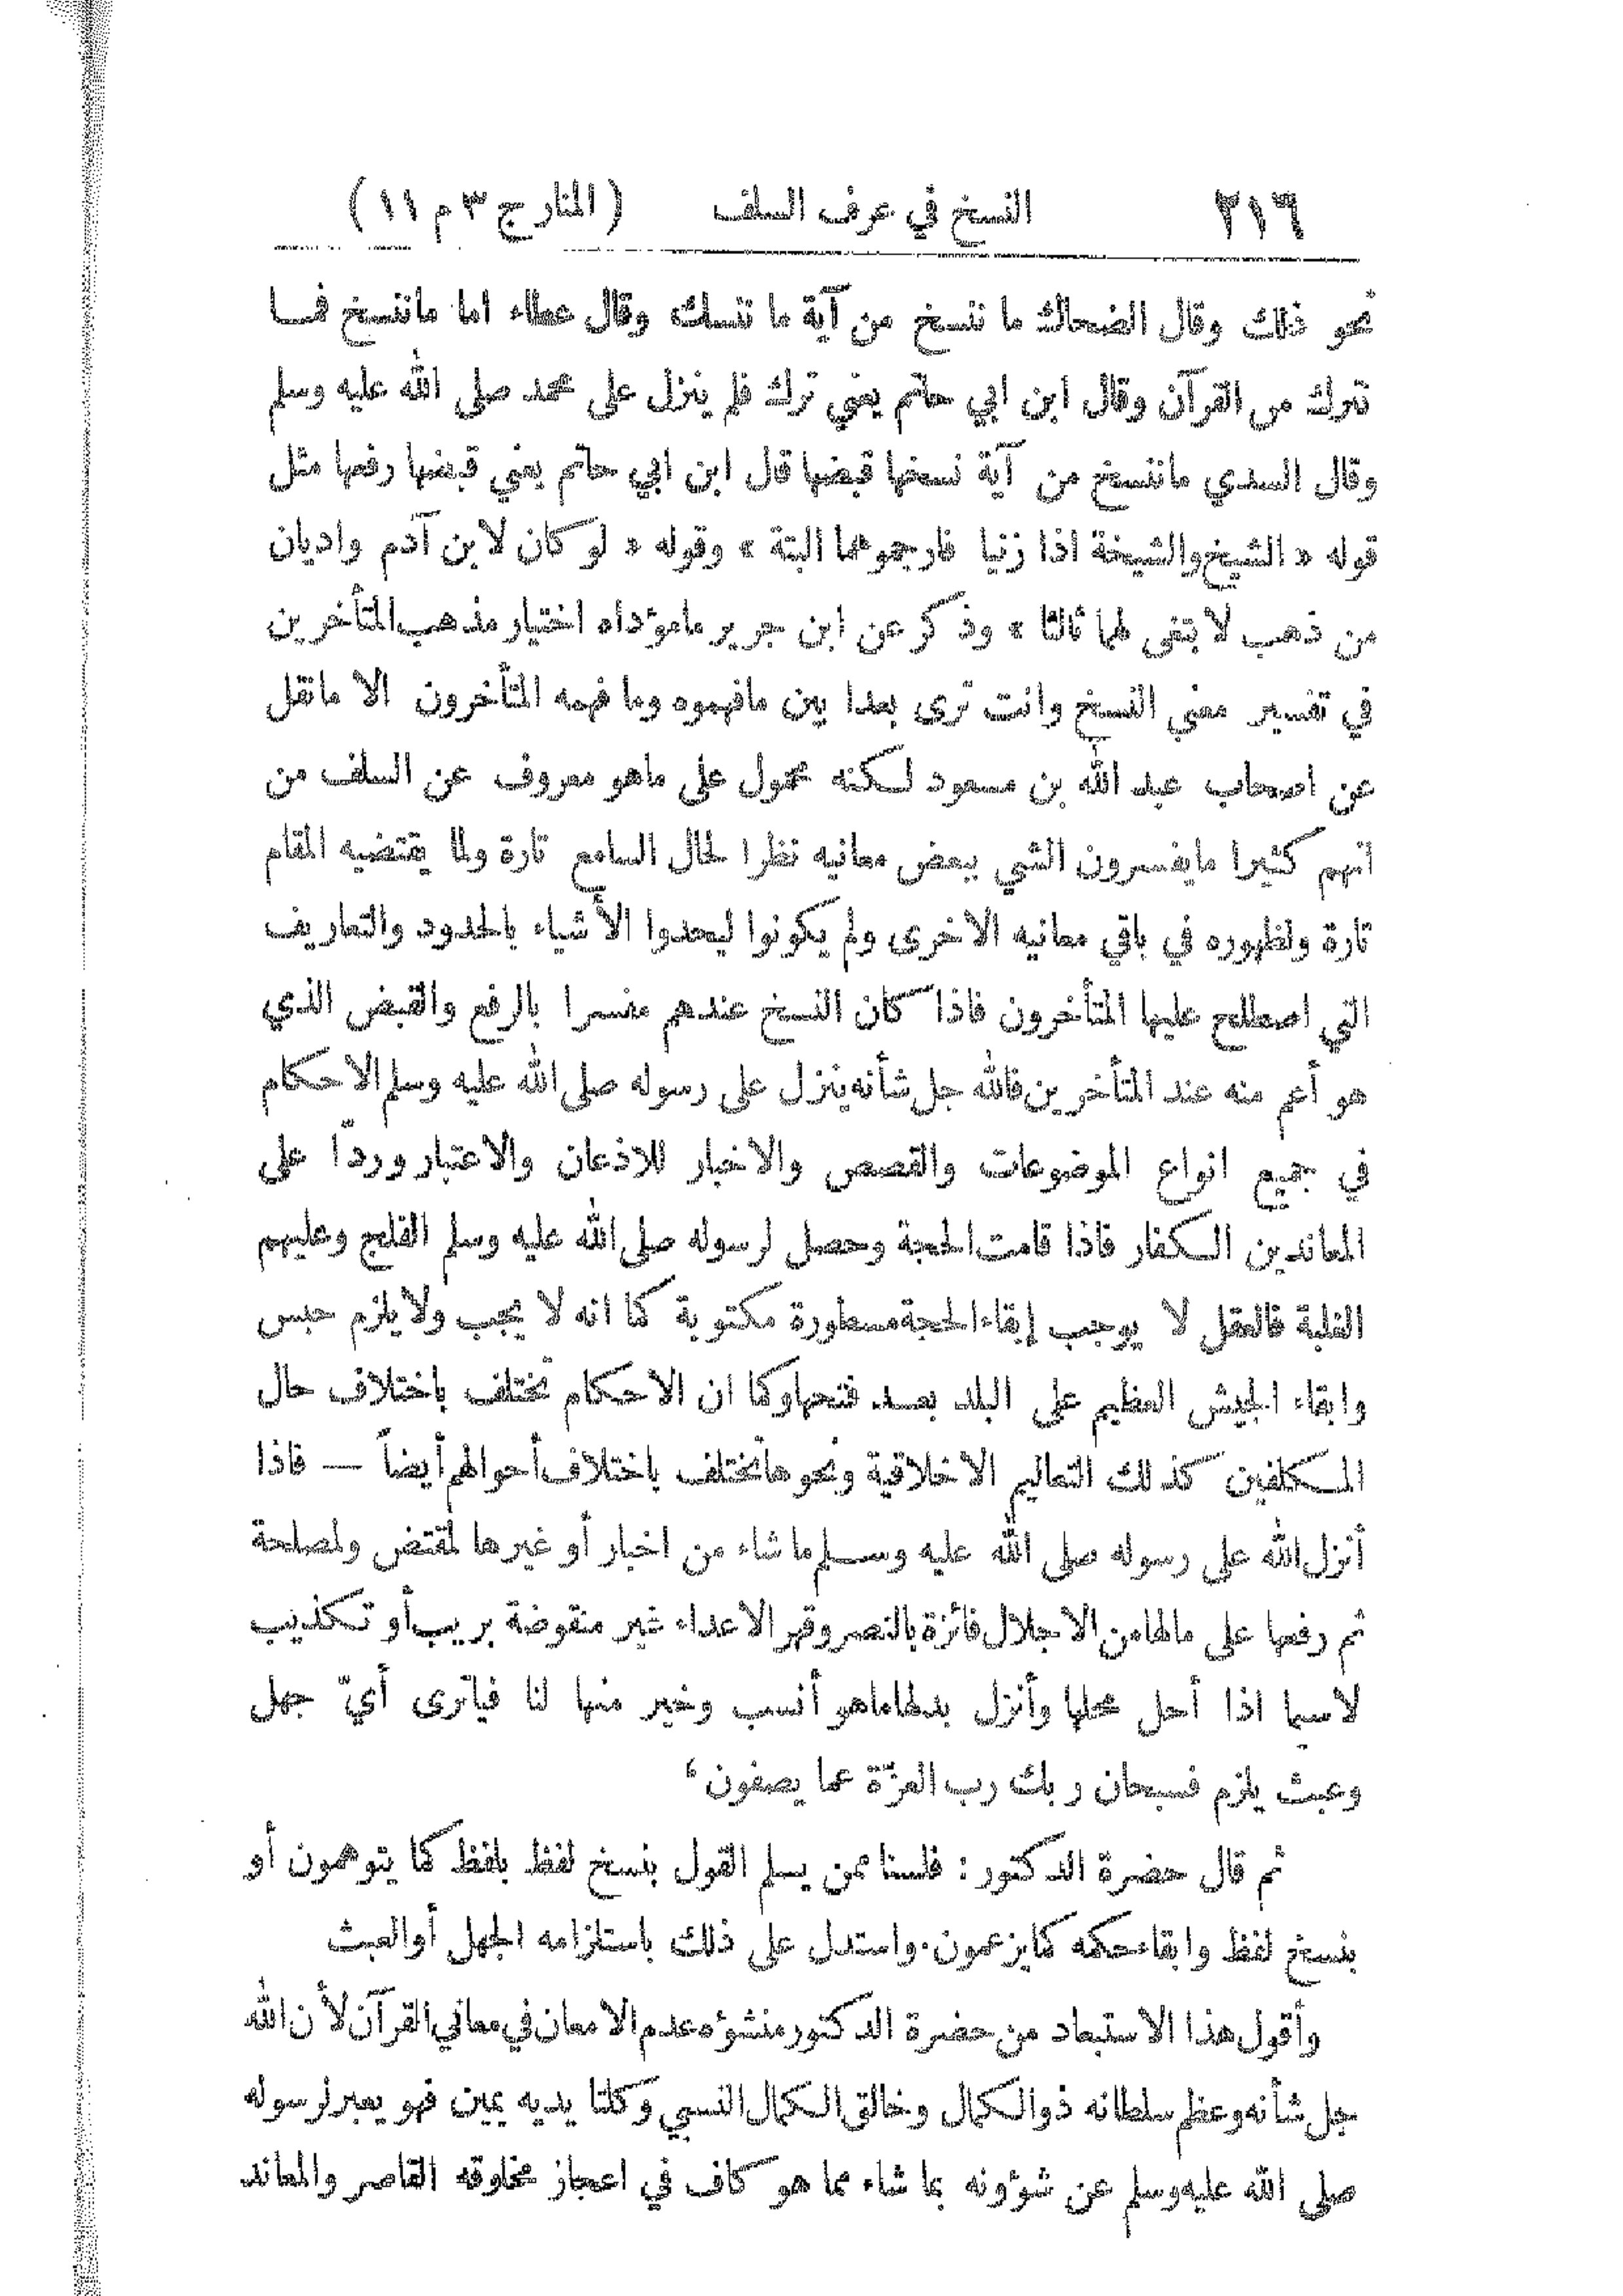 ٢١٦ النسخ في عرف السلف (المنارج ٣ م ١١)
نحو ذلك وقال الضحاك ما ننسخ من آية ما ننسك وقال عطاء اما ماننسخ فما
نترك من القرآن وقال ابن ابي حاتم يعني ترك فلم ينزل على محمد صلى الله عليه وسلم
وقال السدي ماننسخ من آية نسخها قبضها قال ابن ابي حاتم يعني قبضها رفعها مثل
قوله « الشيخ والشيخة اذا زنيا فارجموهما البتة » وقوله « لو كان لابن آدم واديان
من ذهب لابتغى لهما ثالثا » وذكر عن ابن جرير مامؤداه اختيار مذهب المتأخرين
في تفسير معنى النسخ وانت ترى بعدا بين مافهموه وما فهمه المتأخرون الا مانقل
عن اصحاب عبد الله بن مسعود لكنه محمول على ماهو معروف عن السلف من
انهم كثيرا مايفسرون الشي ببعض معانيه نظرا لحال السامع تارة ولما يقتضيه المقام
تارة ولظهوره في باقي معانيه الاخرى ولم يكونوا ليحدوا الأشياء بالحدود والتعاريف
التي اصطلح عليها المتأخرون فاذا كان النسخ عندهم مفسرا بالرفع والقبض الذي
هو أعم منه عند المتأخرين فالله جل شأنه ينزل على رسوله صلى الله عليه وسلم الاحكام
في جميع انواع الموضوعات والقصص والاخبار للاذعان والاعتبار وردّا على
المعاندين الكفار فاذا قامت الحجة وحصل لرسوله صلى الله عليه وسلم الفلج وعليهم
الغلبة فالعقل لا يوجب إبقاء الحجة مسطورة مكتوبة كما انه لا يجب ولا يلزم حبس
وابقاء الجيش العظيم على البلد بعد فتحها وكما ان الاحكام تختلف باختلاف حال
المكلفين كذلك التعاليم الاخلاقية ونحوها تختلف باختلاف أحوالهم أيضاً — فاذا
أنزل الله على رسوله صلى الله عليه وسلم ما شاء من اخبار أو غيرها لمقتض ولمصلحة
ثم رفعها على مالها من الاجلال فائزة بالنصر وقهر الاعداء غير منقوضة بريب أو تكذيب
لاسيما اذا أحل محلها وأنزل بدلها ماهو أنسب وخير منها لنا فياترى أيّ جهل
وعبث يلزم فسبحان ربك رب العزّة عما يصفون ‘
ثم قال حضرة الدكتور : فلسنا ممن يسلم القول بنسخ لفظ بلفظ كما يتوهمون أو
بنسخ لفظ وابقاء حكمه كما يزعمون. واستدل على ذلك باستلزامه الجهل أو العبث
وأقول هذا الاستبعاد من حضرة الدكتور منشؤه عدم الامعان في معاني القرآن لأن الله
جل شأنه وعظم سلطانه ذو الكمال وخالق الكمال النسبي وكلتا يديه يمين فهو يعبر لرسوله
صلى الله عليه وسلم عن شؤونه بما شاء مما هو كاف في اعجاز مخلوقه القاصر والمعاند